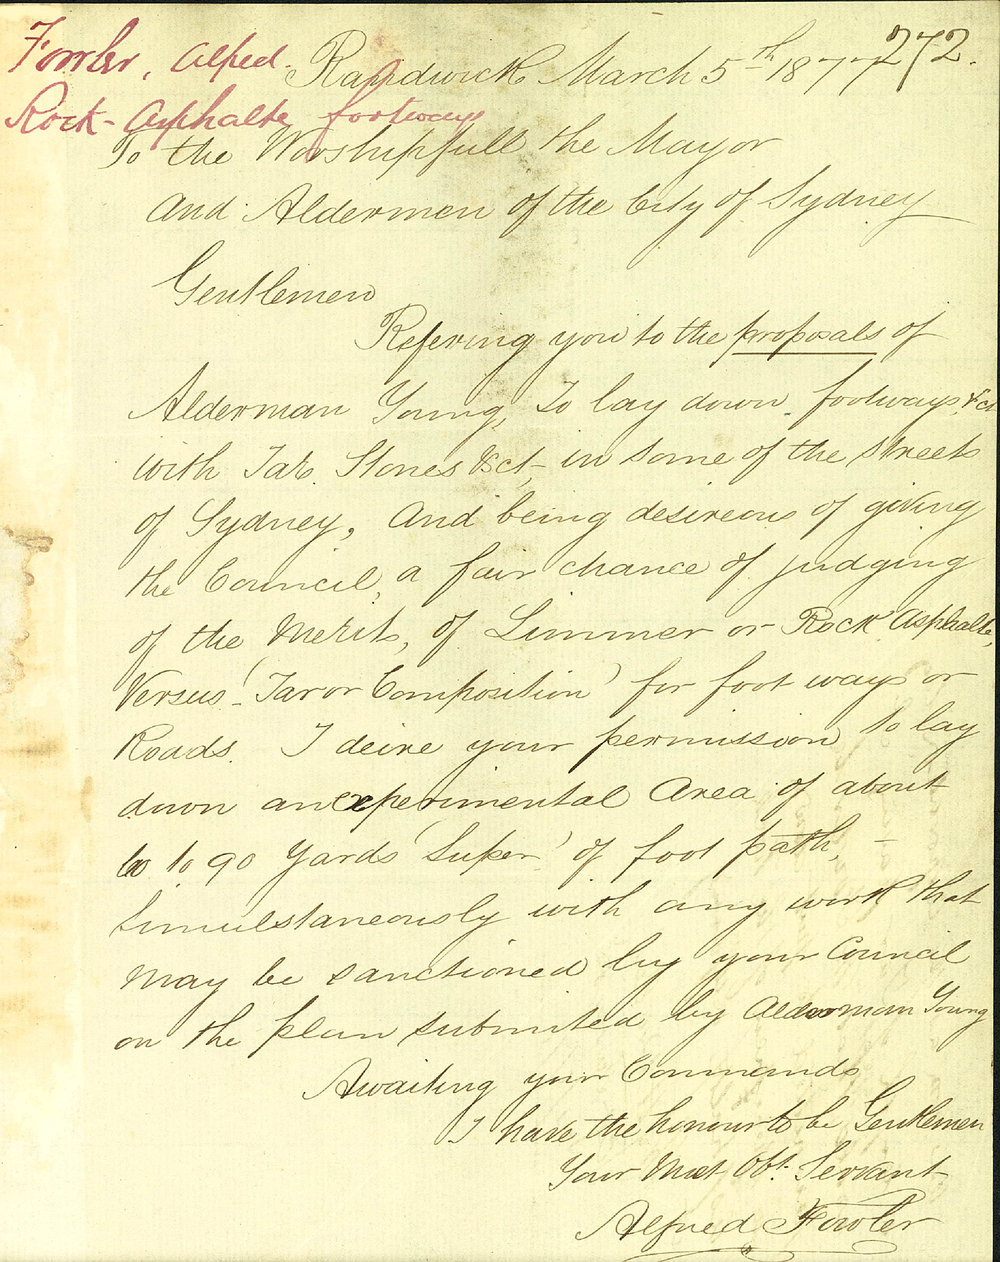 Fowler, Alfred.
Rock-Asphalte footways
272.
Randwick March 5th 1877
To the Worshipfull the Mayor
and Aldermen of the City of Sydney
Gentlemen
Refering you to the proposals of
Alderman Young, To lay down footways &ct
with Tar Stones &ct, in some of the streets
of Sydney, And being desireous of giving
the Council, a fair chance of judging
of the Merits, of Limmer or Rock Asphalte,
Versus 'Tar or Composition' for foot ways or
Roads. I deire your permission to lay
down an experimental Area of about
to 90 Yards 'Super' of foot path, -
Simulstaneously with any work that
May be sanctioned by your Council
on the plan submited by Alderman Young
Awaiting your Commands
I have the honour to be Gentlemen
Your Most Obt. Servant
Alfred Fowler